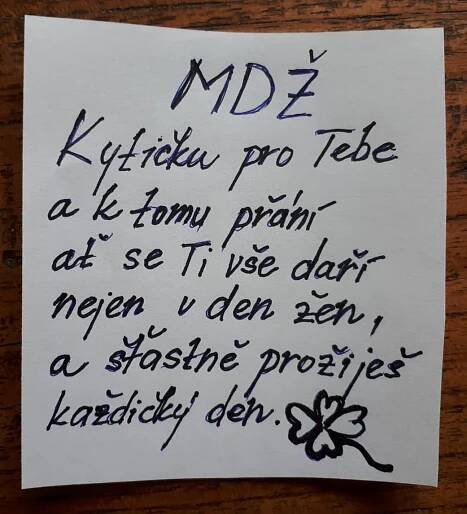 MDŽ
Kytičku pro Tebe
a k tomu přání
ať se Ti vše daří
nejen v den žen,
a šťastně prožiješ
každičký den.